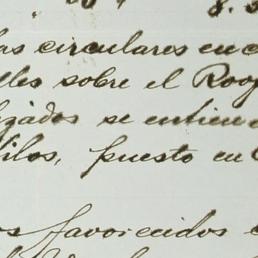 las circulares en c
lles sobre el Roo
gados se entien
Kilos, puesto en
os favorecidos